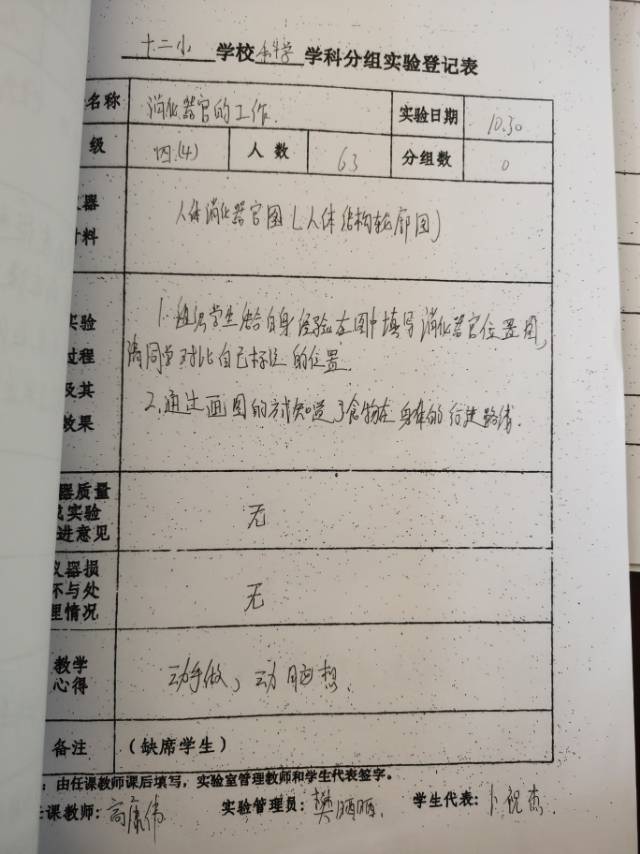 十二小 学校 科学 学科分组实验登记表
名称 消化器官的工作. 实验日期 10.30
级 四.(4) 人数 63 分组数 0
器 人体消化器官图(人体结构轮廓图)
料
实验 1.组织学生结合自身经验在图中填写消化器官位置图,
过程 请同学对比自己标注的位置.
及其 2.通过画图的方式知道了食物在身体的行进路线.
效果
器质量
实验 无
进意见
仪器损
坏与处 无
理情况
教学 动手做,动脑想.
心得
备注 (缺席学生)
:由任课教师课后填写,实验室管理教师和学生代表签字。
任课教师:高康伟 实验管理员:樊晒晒. 学生代表:卜祝杰.